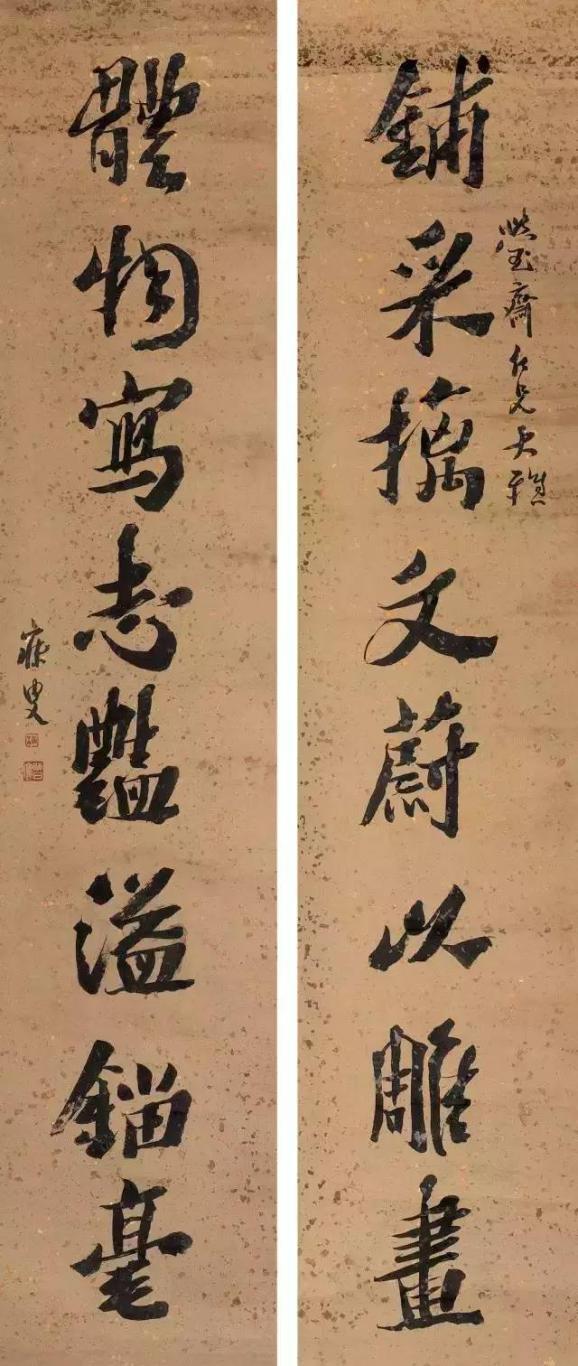 瑩齋仁兄大雅
鋪采摛文蔚以雕畫
體物寫志豔溢錙毫
寐叟